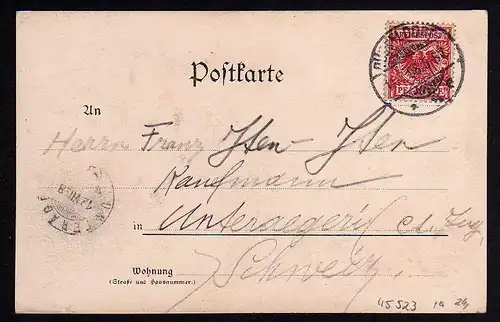 Postkarte
An
Herrn Franz Iten-Iten
Kaufmann
in Unteraegeri Ct. Zug
Wohnung
(Straße und Hausnummer.)
Schweiz
45523